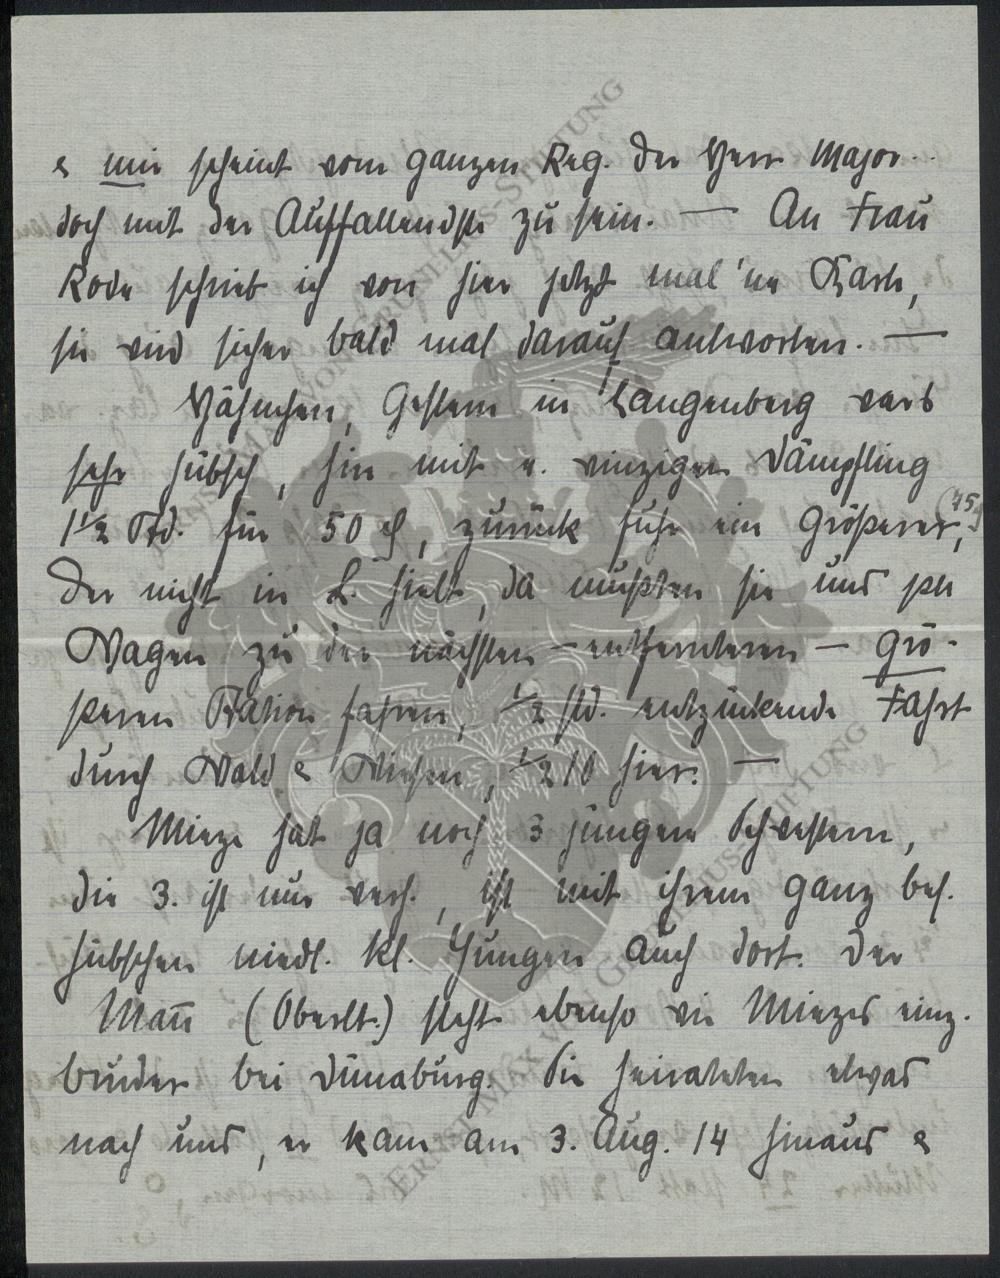 & mir scheint vom ganzen Reg. der Herr Major...
doch mit der Auffallendste zu sein. — An Frau
Rode schrieb ich von hier jetzt mal 'ne Karte,
sie wird sicher bald mal darauf antworten. —
Hähnchen, Gestern in Langenberg wars
sehr hübsch, hin mit e. winzigen Dämpfling
1½ Std. für 50 ₰, zurück fuhr ein Größerer, (75 ₰)
der nicht in L. hielt, da mußten sie uns per
Wagen zu der nächsten – entfernteren – grö-
sseren Station fahren, ½ std. entzückende Fahrt
durch Wald & Wiesen, ½ 10 hier. —
Mieze hat ja noch 3 jüngere Schwestern,
die 3. ist nur verh., ist mit ihrem ganz bes.
hübschen niedl. kl. Jungen auch dort. Der
Mann (Oberlt.) steht ebenso wie Miezes einz.
Bruder bei Dünaburg. Sie heirateten etwas
nach uns, er kam am 3. Aug. 14 hinaus &
ERNST MAX VON GRUNELIUS-STIFTUNG
ERNST MAX VON GRUNELIUS-STIFTUNG